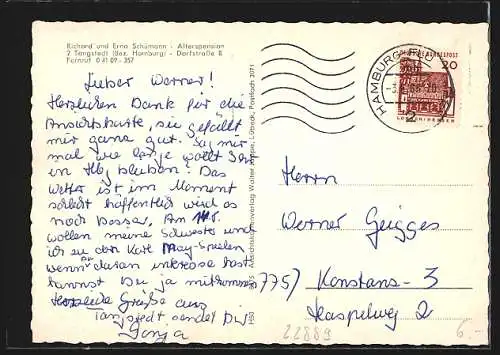 Richard und Erna Schümann - Alterspension
2 Tangstedt (Bez. Hamburg) - Dorfstraße 8
Fernruf 0 41 09 - 357
HAMBURG FLU
DEUTSCHE BUNDESPOST
20
LORSCH/HESSEN
2
Lieber Werner!
Herzlichen Dank für die
Ansichtskarte, sie gefällt
mir ganz gut. Sag mir
mal wie lange wollt Ihr
in Hbg bleiben. Das
Wetter ist im Moment
schlecht hoffentlich wird es
noch besser. Am
wollen meine Schwester und
ich zu den Karl May-Spielen
wenn Du daran interesse hast
kannst Du ja mitkommen
Grüße aus
Tangstedt sendet Dir
Sonja
Herrn
Werner Geigges
775) Konstanz - 3
Kaspelweg 2
22889
6.-